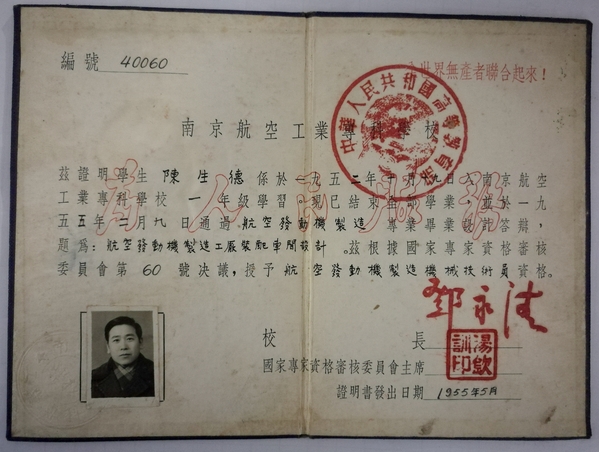 編號 40060
全世界無產者聯合起來！
中華人民共和國高等教育部
南京航空工業專科學校
茲證明學生 陳生德 係於一九五二年十月十九日入南京航空
工業專科學校一年級學習。現已結束全部學業，並於一九
五五年二月九日通過航空發動機製造專業畢業設計答辯，
題為：航空發動機製造工廠裝配車間設計。茲根據國家專家資格審核
委員會第60號決議，授予 航空發動機製造機械技術員資格。
為人民服務
校長
國家專家資格審核委員會主席
湯欽訓印
證明書發出日期 1955年5月